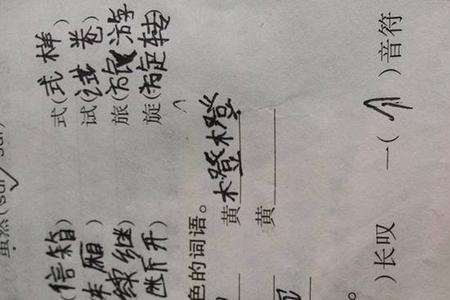 信箱) 式(式样)
车厢) 试(试卷)
续继) 旅(旅游)
断开) 旋(旋转)
色的词语。
黄橙橙
黄
)长叹 一(个)音符